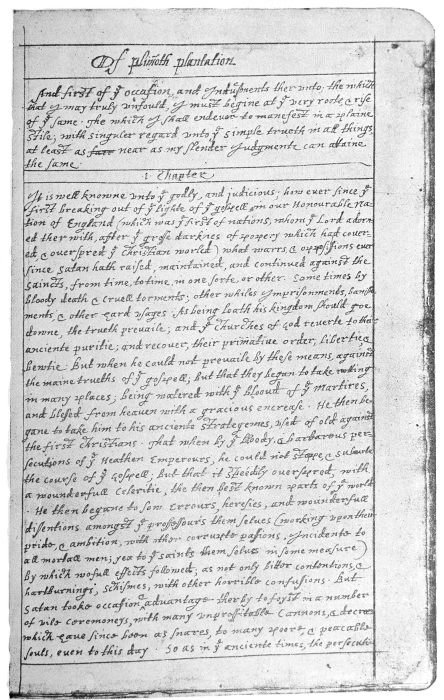 Of plimoth plantation
And first of yͤ occasion, and Indusments ther unto; the which
that I may truly unfould, I must begine at yͤ very roote, & rise
of yͤ same. The which I shall endevor to manefest in a plaine
stile; with singuler regard unto yͤ simple trueth in all things,
at least as near as my slender Judgmente can attaine
the same.
1. Chapter
It is well knowne unto yͤ godly, and judicious; how ever since yͤ
first breaking out of yͤ lighte of yͤ gospell, in our Honourable Na-
tion of England (which was yͤ first of nations, whom yͤ Lord adorn-
ed ther with, after yͤ grose darknes of popery which had cover-
ed & overspred yͤ Christian world) what warrs, & oppossions ever
since Satan hath raised, maintained, and continued against the
saincts, from time, to time, in one sorte, or other. Some times by
bloody death & cruell torments; other whiles Imprisonments, banish-
ments, & other hard usages. As being loath his kingdom should goe
downe, the trueth prevaile; and yͤ Churches of God reverte to their
anciente puritie; and recover, their primative order, libertie, &
bewtie. But when he could not prevaile by these means, against
the maine trueths of yͤ gospell, but that they began to take rootting
in many places; being watered with yͤ bloud of yͤ martires,
and blessed from heaven with a gracious encrease. He then be-
gane to take him to his anciente strategemes, used of old against
the first Christians. That when by yͤ bloody, & barbarous per-
secutions of yͤ Heathen Emperours, he could not stoppe, & subverte
the course of yͤ Gospell; but that it speedily overspred, with
a wounderfull Celeritie, the then best known parts of yͤ world.
He then began to sow Errours, heresies, and wounderfull
disentions amongst yͤ professours them selves (working upon their
pride, & ambition, with other corrupte passions, Incidente to
all mortall men; yea to yͤ saints them selves in some measure)
by which wofull effects followed; as not only bitter contentions, &
hartburnings, schismes, with other horrible confusions. But
Satan tooke occasion, & advantage therby to foyst in a number
of vile ceremoneys, with many unproffitable Cannons, & decrees
which have since been as snares, to many poore, & peacable
souls, even to this day. So as in yͤ anciente times, the persecuti-